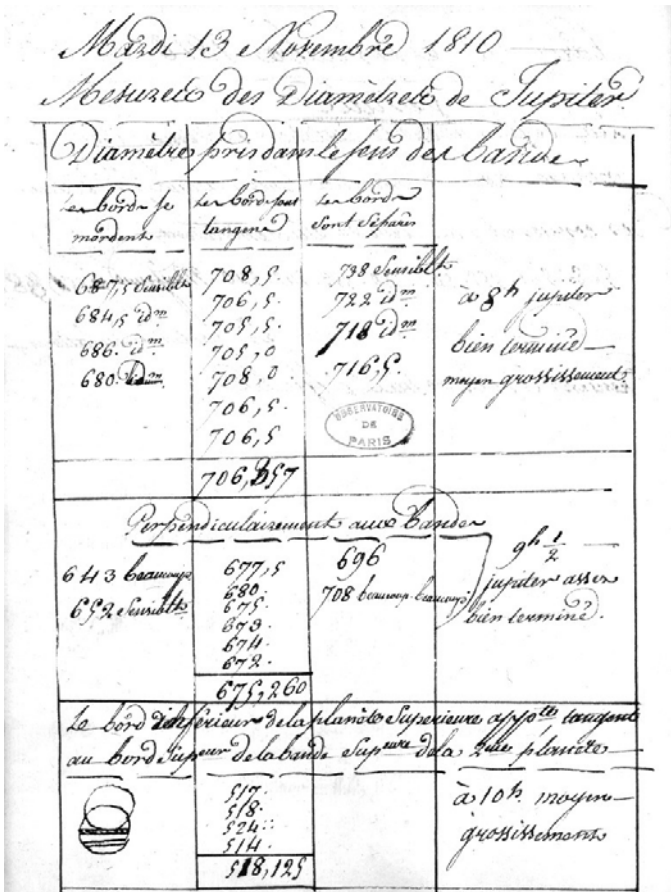 Mardi 13 Novembre 1810
Mesures des Diamètres de Jupiter
Diamètre pris dans le sens des bandes
Les bords se mordent
Les bords sont tangens
Les bords sont séparés
687,5 sensiblt
684,5 idm
686. idm
680. idm
708,5.
706,5.
705,5.
705,0
708,0
706,5.
706,5
706,357
738 sensiblt
722 idm
718 idm
716,5.
à 8h jupiter
bien terminé
moyen grossissement
OBSERVATOIRE
DE
PARIS
Perpendiculairement aux bandes
643 beaucoup
652 sensiblt
677,5
680.
675.
673.
674.
672.
675,260
696
708 beaucoup beaucoup
9h 1/2
jupiter assez
bien terminé.
Le bord inférieur de la planète supérieure appte, tangent
au bord supeur de la bande supeure de la 2me planète
517.
518.
524::
514.
518,125
à 10h. moyen
grossissement